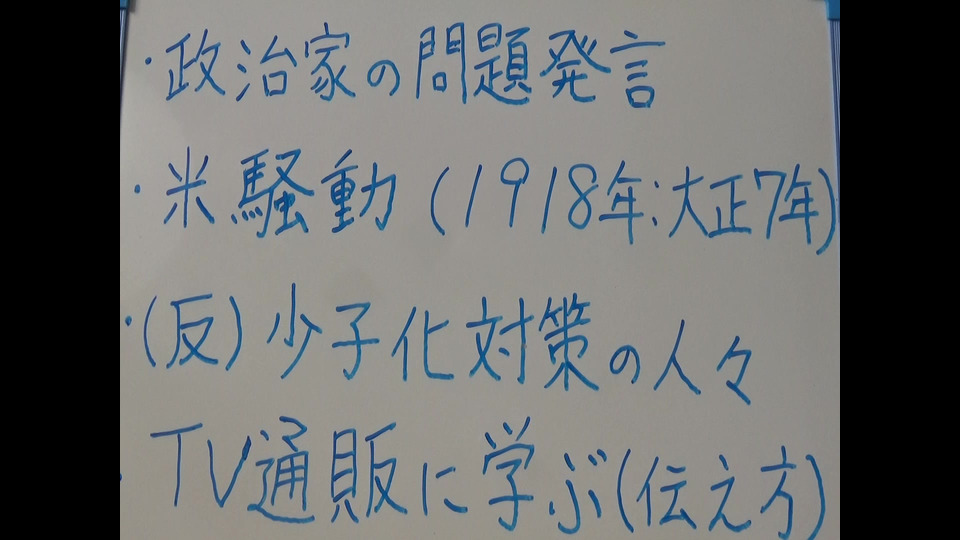 ・政治家の問題発言
・米騒動(1918年:大正7年)
・(反)少子化対策の人々
・TV通販に学ぶ(伝え方)